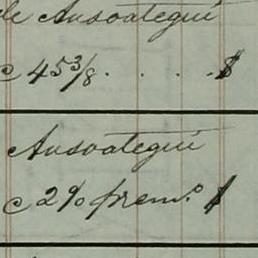 de Ansoategui
c 45 3/8 . . . . $
Ansoategui
c 2% prem.º $